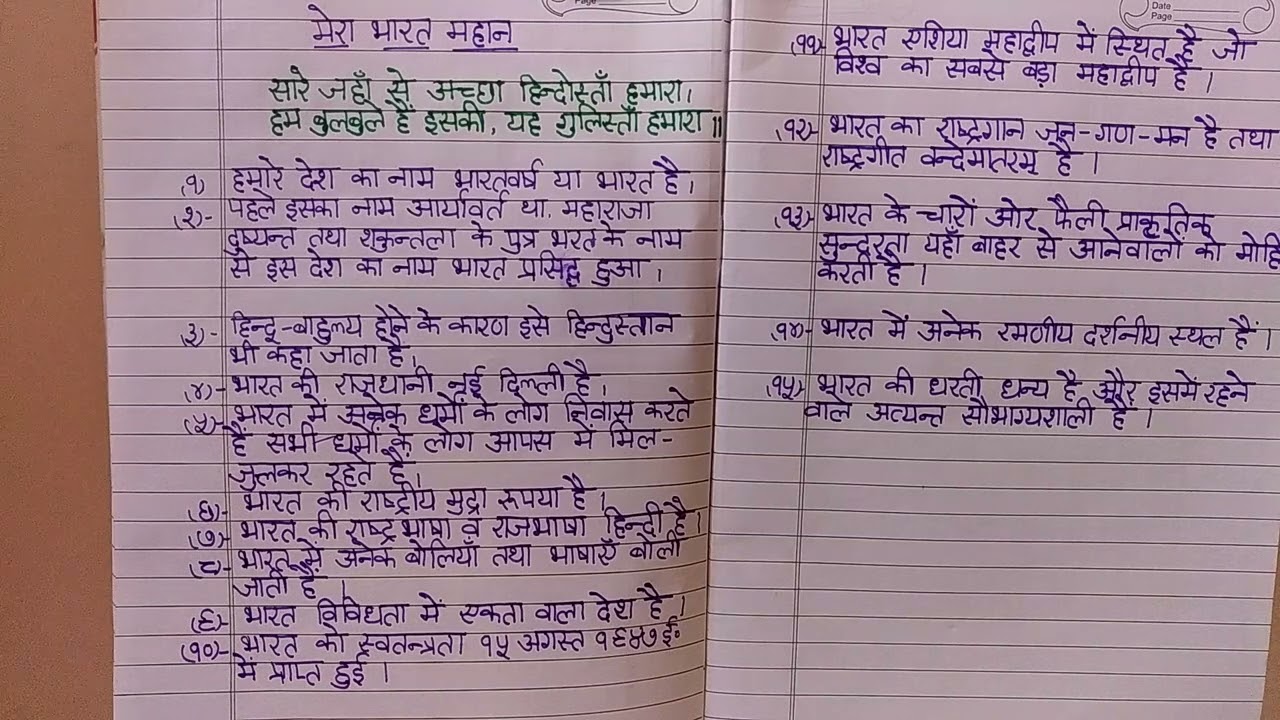 मेरा भारत महान
सारे जहाँ से अच्छा हिन्दोस्ताँ हमारा।
हम बुलबुले हैं इसकी, यह गुलिस्ताँ हमारा॥
(१) हमारे देश का नाम भारतवर्ष या भारत है।
(२)- पहले इसका नाम आर्यावर्त था. महाराजा
दुष्यन्त तथा शकुन्तला के पुत्र भरत के नाम
से इस देश का नाम भारत प्रसिद्ध हुआ।
(३)- हिन्दू-बाहुल्य होने के कारण इसे हिन्दुस्तान
भी कहा जाता है।
(४)- भारत की राजधानी नई दिल्ली है।
(५)- भारत में अनेक धर्मों के लोग निवास करते
हैं सभी धर्मों के लोग आपस में मिल-
जुलकर रहते हैं।
(६)- भारत की राष्ट्रीय मुद्रा रूपया है।
(७)- भारत की राष्ट्रभाषा व राजभाषा हिन्दी है।
(८)- भारत में अनेक बोलियाँ तथा भाषाएँ बोली
जाती हैं ।
(९)- भारत विविधता में एकता वाला देश है।
(१०)- भारत को स्वतन्त्रता १५ अगस्त १९४७ ई॰
में प्राप्त हुई ।
Page
Date
Page
(११)- भारत एशिया महाद्वीप में स्थित है जो
विश्व का सबसे बड़ा महाद्वीप है ।
(१२)- भारत का राष्ट्रगान जन-गण-मन है तथा
राष्ट्रगीत वन्देमातरम् है ।
(१३)- भारत के चारों ओर फैली प्राकृतिक
सुन्दरता यहाँ बाहर से आनेवालों को मोहि
करती है ।
(१४)- भारत में अनेक रमणीय दर्शनीय स्थल हैं ।
(१५)- भारत की धरती धन्य है और इसमें रहने
वाले अत्यन्त सौभाग्यशाली हैं ।